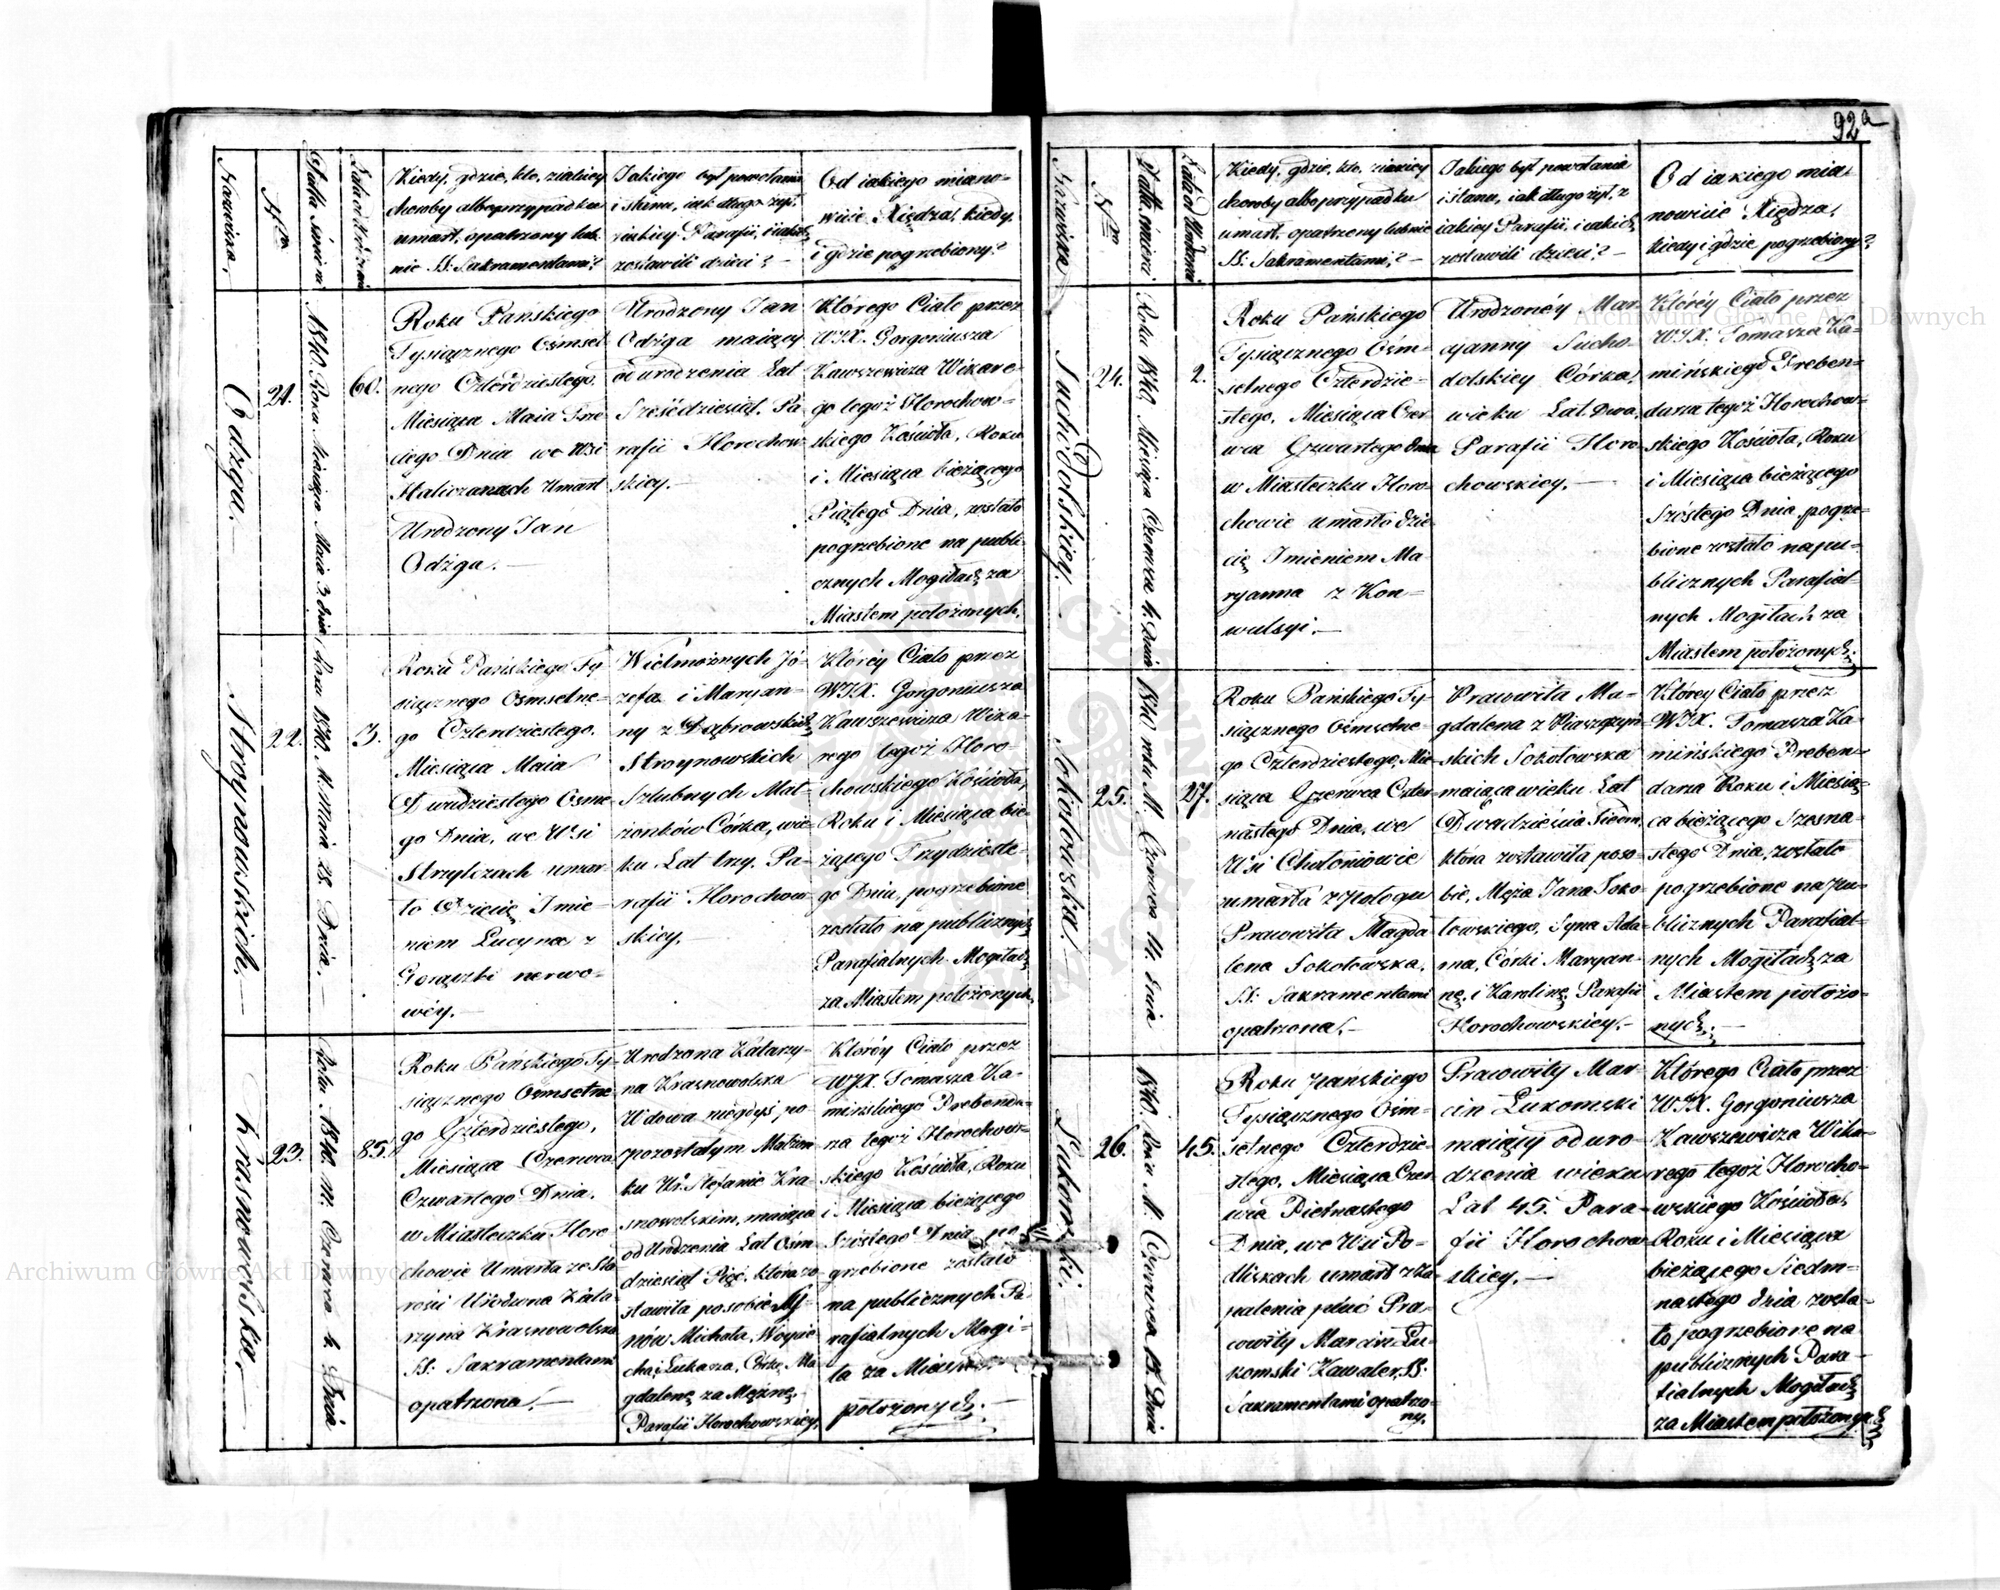 92a
Nazwiska.
Nro
Datta śmierci
Lata od Urodzenia
Kiedy, gdzie, kto, z iakiey
choroby albo przypadku
umarł, opatrzony lub
nie SS: Sakramentami?
Jakiego był powołania
i stanu, iak długo żył,
z iakiey Parafii, i iakich
zostawili dzieci? —
Od iakiego miano-
wicie Xiędza, kiedy
i gdzie pogrzebiony?
Odżga. —
21.
1840 Roku Miesiąca Maia 3 dnia
60.
Roku Pańskiego
Tysiącznego Ośmset-
nego Czterdziestego,
Miesiąca Maia Trze-
ciego Dnia we Wsi
Haliczanach Umarł
Urodzony Jan
Odżga. —
Urodzony Jan
Odżga maiący
od urodzenia Lat
Sześćdziesiąt. Pa-
rafii Horochow-
skiey. —
Którego Ciało przez
WJX. Gorgoniusza
Kawszewicza Wikare-
go tegoż Horochow-
skiego Kościoła, Roku
i Miesiąca bieżącego
Piątego Dnia, zostało
pogrzebione na publi-
cznych Mogiłach za
Miastem położonych.
Stroynowskich. —
22.
Roku 1840. M. Maia 28. Dnia.
3.
Roku Pańskiego Ty-
siącznego Ośmsetne-
go Czterdziestego,
Miesiąca Maia
Dwudziestego Osme-
go Dnia, we Wsi
Strzylczach umar-
ło Dziecię Imie-
niem Lucyna z
Gorączki nerwo-
wéy. —
Wielmożnych Jó-
zefa i Maryan-
ny z Dąbrowskich
Stroynowskich
Szlubnych Mał-
żonków Córka, wie-
ku Lat trzy. Pa-
rafii Horochow-
skiey.
Któréy Ciało przez
WJX. Gorgoniusza
Kawszewicza Wika-
rego tegoż Horo-
chowskiego Kościoła,
Roku i Miesiąca bie-
żącego Trzydzieste-
go Dnia, pogrzebione
zostało na publicznych
Parafialnych Mogiłach
za Miastem położonych.
Krasnowolska. —
23.
Roku 1840. M. Czerwca 4 Dnia
85.
Roku Pańskiego Ty-
siącznego Ośmsetne-
go Czterdziestego,
Miesiąca Czerwca
Czwartego Dnia,
w Miasteczku Horo-
chowie Umarła ze Sta-
rości Urodzona Kata-
rzyna Krasnowolska
SS: Sakramentami
opatrzona. —
Urodzona Katarzy-
na Krasnowolska
Wdowa niegdyś po
pozostałym Małżon-
ku Ur. Stefanie Kra-
snowolskim, maiąca
od Urodzenia Lat Ośm-
dziesiąt Pięć, która zo-
stawiła po sobie Sy-
nów Michała, Woycie-
cha i Łukasza, Córkę Ma-
gdalenę za Mężną,
Parafii Horochowskiey.
Któréy Ciało przez
WJX. Tomasza Ka-
mińskiego Prebenda-
rza tegoż Horochow-
skiego Kościoła, Roku
i Miesiąca bieżącego
Szóstego Dnia po-
grzebione zostało
na publicznych Pa-
rafialnych Mogi-
ła za Miastem
położonych. —
Nazwiska
Nro
Datta śmierci
Lata od Urodzenia
Kiedy, gdzie, kto, z iakiey
choroby albo przypadku
umarł, opatrzony lub nie
SS: Sakramentami? —
Jakiego był powołania
i stanu, iak długo żył, z
iakiey Parafii, i iakich
zostawili dzieci? —
Od iakiego mia-
nowicie Xiędza,
kiedy i gdzie pogrzebiony?
Suchodolskiey. —
24.
Roku 1840 Miesiąca Czerwca 4 Dnia
2.
Roku Pańskiego
Tysiącznego Ośm-
setnego Czterdzie-
stego, Miesiąca Czer-
wca Czwartego dnia
w Miasteczku Horo-
chowie umarło dzie-
cię Imieniem Ma-
ryanna z Kon-
wulsyi. —
Urodzonéy Mar-
yjanny Sucho-
dolskiey Córka,
wieku Lat Dwa,
Parafii Horo-
chowskiey. —
Któréy Ciało przez
WJX. Tomasza Ka-
mińskiego Preben-
darza tegoż Horochow-
skiego Kościoła, Roku
i Miesiąca bieżącego
Szóstego Dnia, pogrze-
bione zostało na pu-
blicznych Parafial-
nych Mogiłach za
Miastem położonych.
Sokołowska. —
25.
1840 roku M. Czerwca 14 dnia
27.
Roku Pańskiego Ty-
siącznego Ośmsetne-
go Czterdziestego, Mie-
siąca Czerwca Czter-
nastego Dnia, we
Wsi Chołoniowie
umarła z Pologu
Prawowita Magda-
lena Sokołowska,
SS: Sakramentami
opatrzona. —
Prawowita Ma-
gdalena z
skich Sokołowska
maiąca wieku Lat
Dwadzieścia Siedm,
która zostawiła po so-
bie, Męża Jana Soko-
łowskiego, Syna Ada-
ma, Córki Maryan-
nę, i Karolinę, Parafii
Horochowskiey. —
Którey Ciało przez
WJX. Tomasza Ka-
mińskiego Preben-
darza Roku i Miesią-
ca bieżącego Szesna-
stego Dnia, zostało
pogrzebione na pu-
blicznych Parafial-
nych Mogiłach za
Miastem położo-
nych. —
Łukomski.
26.
1840. Roku M. Czerwca 15. Dnia
45.
Roku Pańskiego
Tysiącznego Ośm-
setnego Czterdzie-
stego, Miesiąca Czer-
wca Pietnastego
Dnia, we Wsi Po-
dliskach umarł z Za-
palenia płuc Pra-
cowity Marcin Łu-
komski Kawaler, SS:
Sakramentami opatrzo-
ny.
Pracowity Mar-
cin Łukomski
maiący od uro-
dzenia wieku
Lat 45. Para-
fii Horochow-
skiey. —
Którego Ciało przez
WJX. Gorgoniusza
Kawszewicza Wika-
rego tegoż Horocho-
wskiego Kościoła,
Roku i Miesiąca
bieżącego Siedm-
nastego dnia zosta-
ło pogrzebione na
publicznych Para-
fialnych Mogiłach
za Miastem położonych
Archiwum Główne Akt Dawnych
Archiwum Główne Akt Dawnych